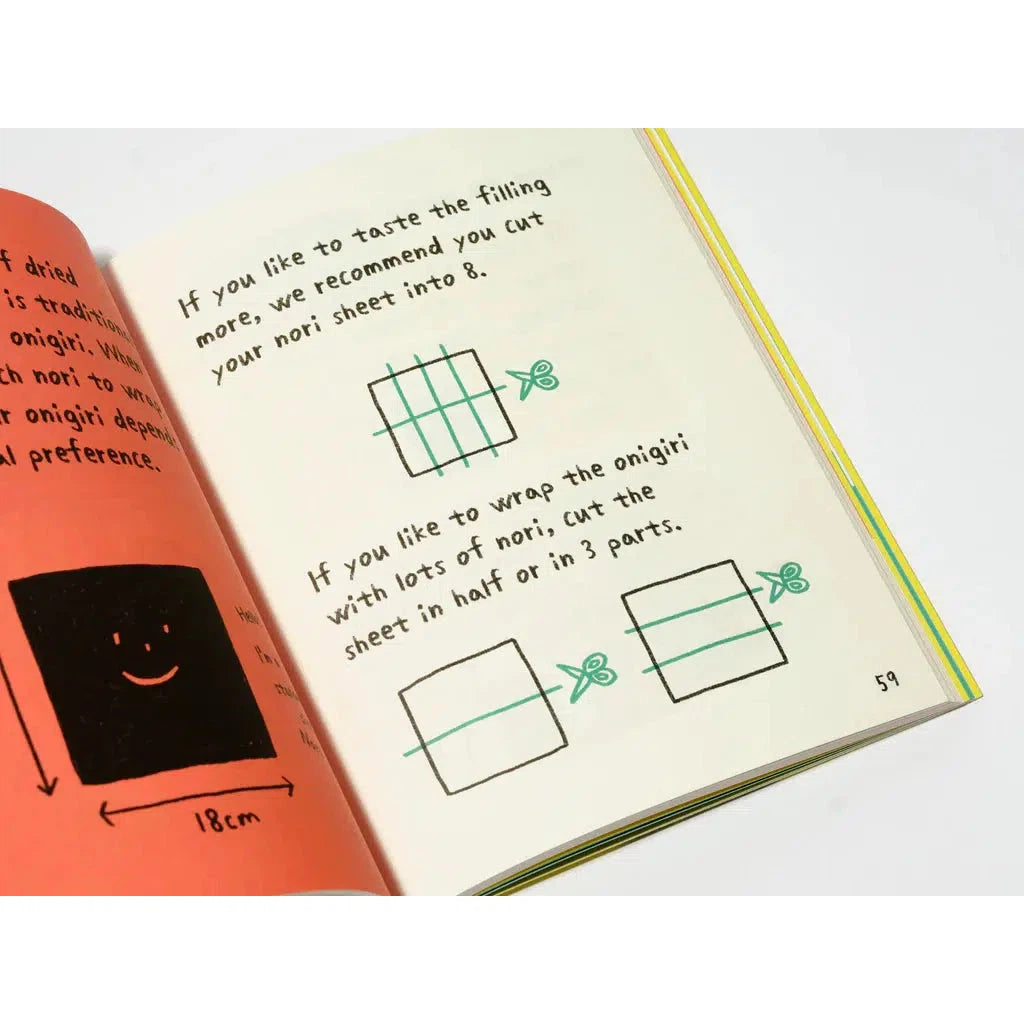 f dried
is tradition
onigiri. When
ch nori to wrap
r onigiri depends
al preference.
Hello
I'm
18cm
If you like to taste the filling
more, we recommend you cut
your nori sheet into 8.
If you like to wrap the onigiri
with lots of nori, cut the
sheet in half or in 3 parts.
59